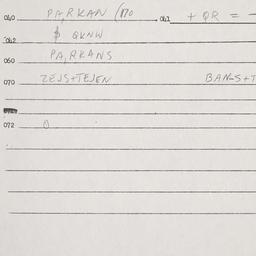 040 PARKAN (170 041 + QR = -
042 $ QKNW
060 PARKANS
070 ZEJS+TEJEN BAN-S+T
072 0